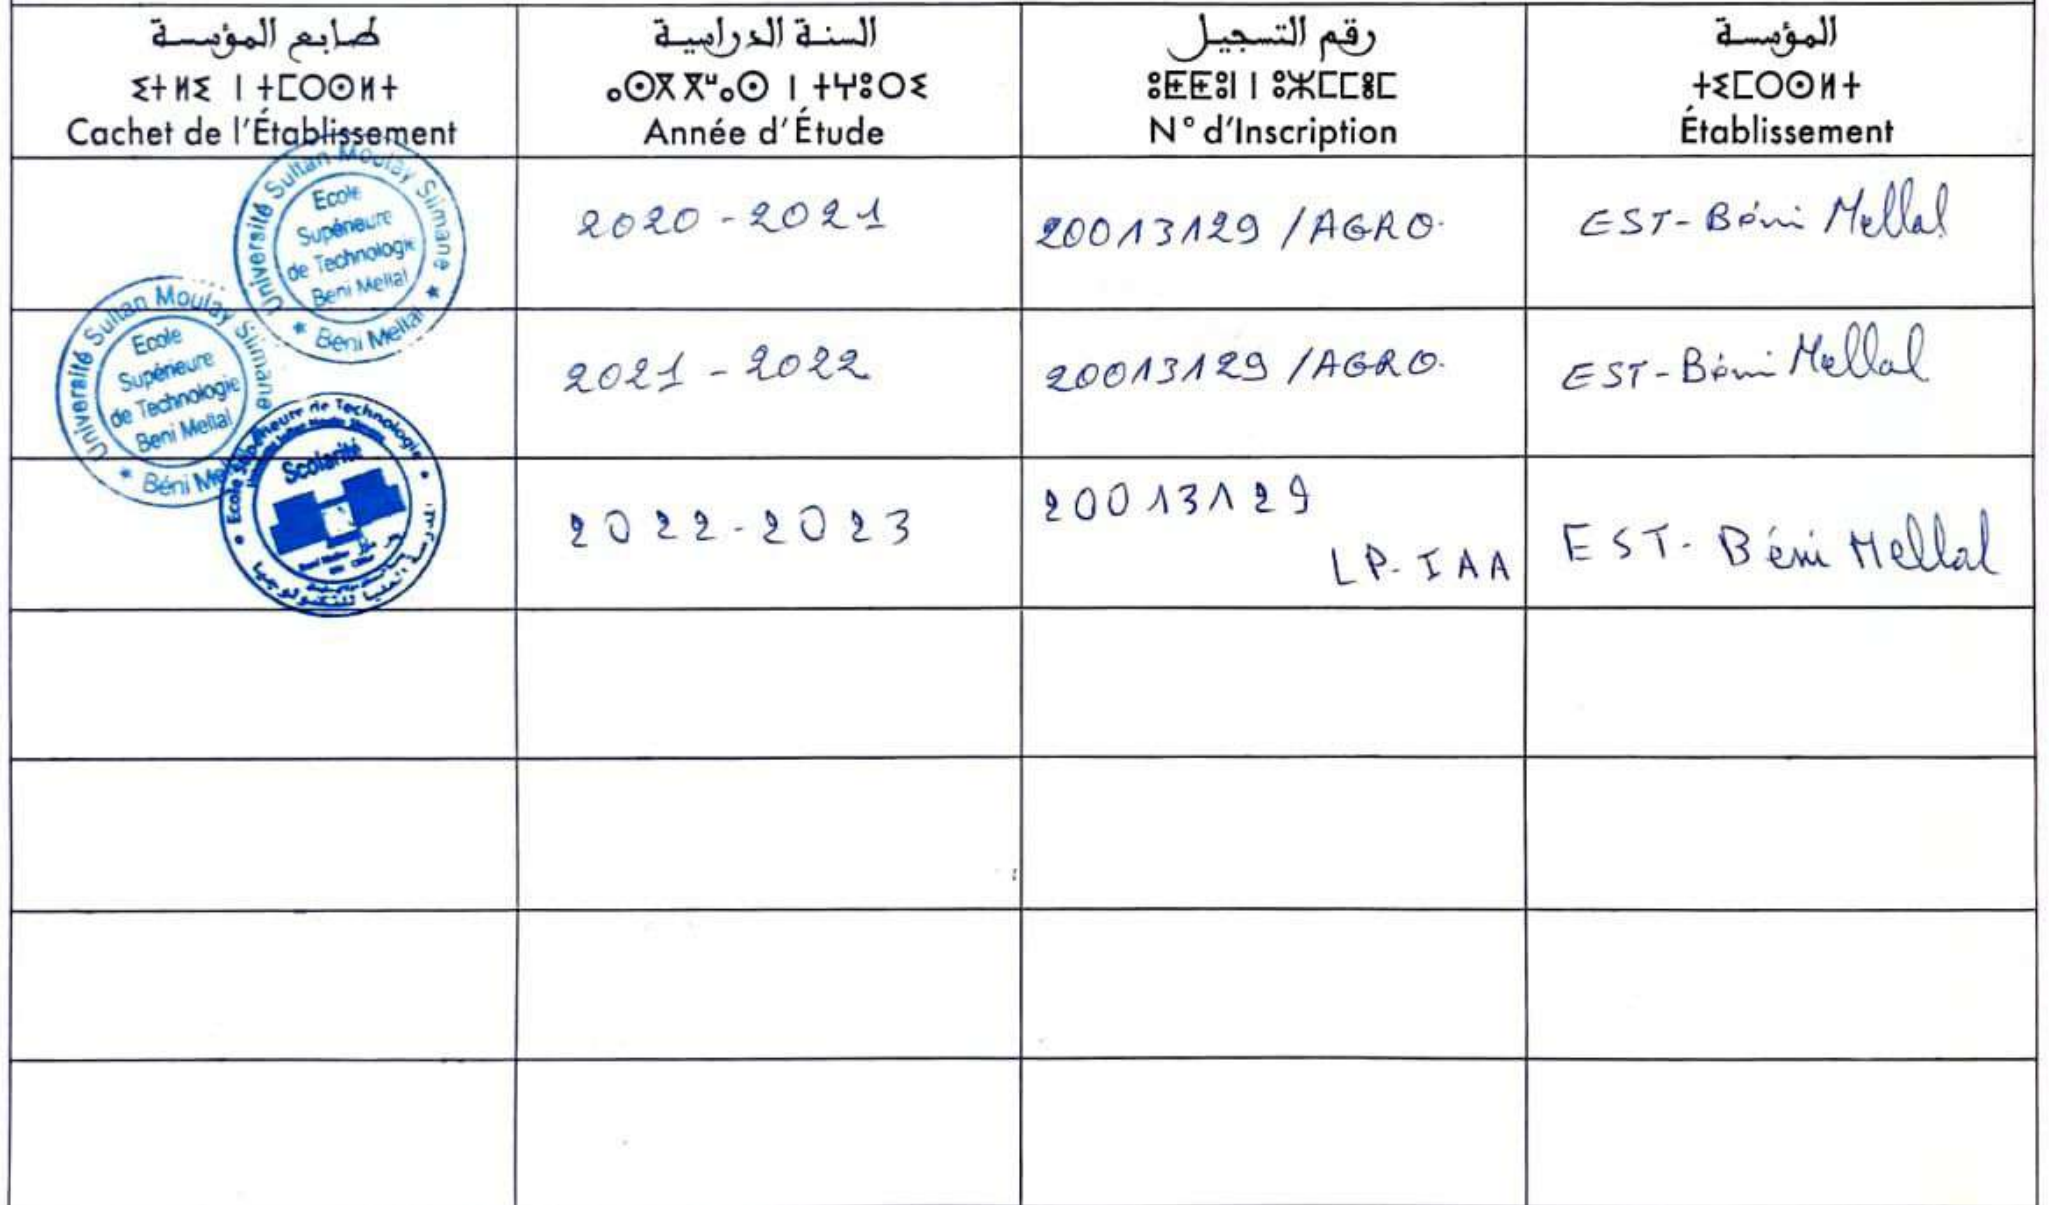 طابع المؤسسة
ⵉⵜⵍⵉ ⵏ ⵜⵎⵔⵙⵍⵜ
Cachet de l'Établissement
السنة الدراسية
ⴰⵙⴳⴳⵯⴰⵙ ⵏ ⵜⵖⵓⵔⵉ
Année d'Étude
رقم التسجيل
ⵓⵟⵟⵓⵏ ⵏ ⵓⵣⵎⵎⴻⵎ
N° d'Inscription
المؤسسة
ⵜⵉⵎⵔⵙⵍⵜ
Établissement
Université Sultan Moulay Slimane
Ecole
Supérieure
de Technologie
Beni Mellal
* Béni Mellal *
2020-2021
20013129 /AGRO.
EST-Béni Mellal
Université Sultan Moulay Slimane
Ecole
Supérieure
de Technologie
Beni Mellal
* Béni
2021-2022
20013129 /AGRO.
EST-Béni Mellal
Ecole Supérieure de Technologie
Scolarité
المدرسة العليا للتكنولوجيا
2022-2023
20013129
LP-IAA
EST-Béni Mellal